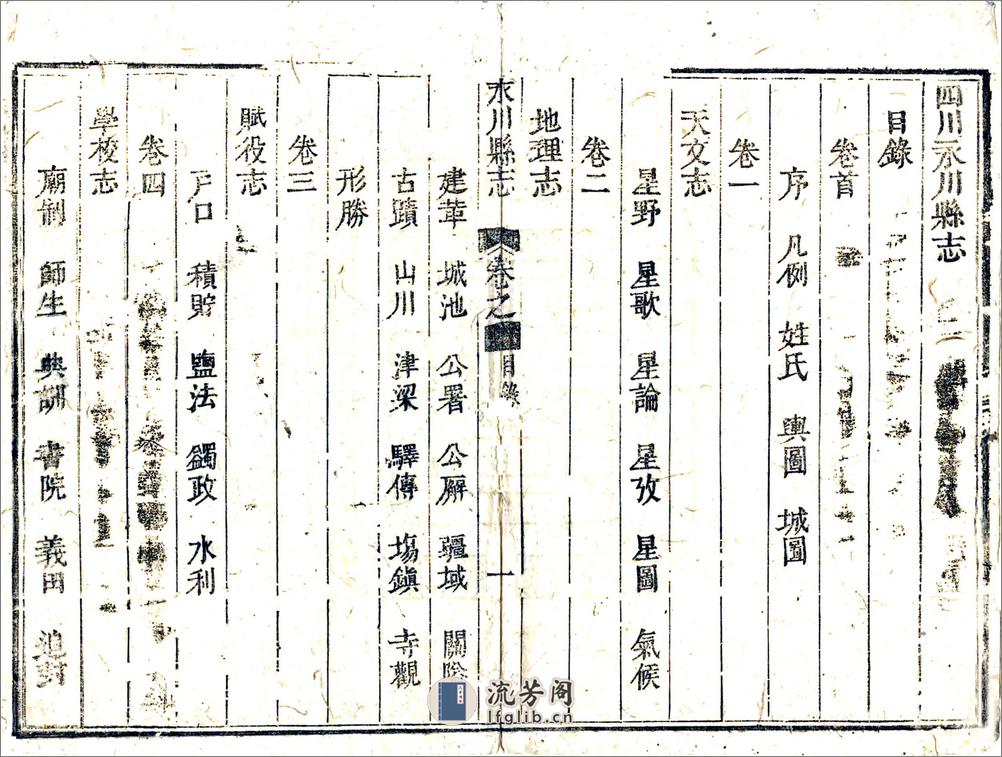 四川永川縣志
目錄
卷首
序 凡例 姓氏 輿圖 城圖
卷一
天文志
星野 星歌 星論 星攷 星圖 氣候
卷二
地理志
永川縣志 卷之 目錄 一
建革 城池 公署 公廨 疆域 關隘
古蹟 山川 津梁 驛傳 塲鎮 寺觀
形勝
卷三
賦役志
戶口 積貯 鹽法 蠲政 水利
卷四
學校志
廟制 師生 典訓 書院 義田
流芳阁
lfglib.cn